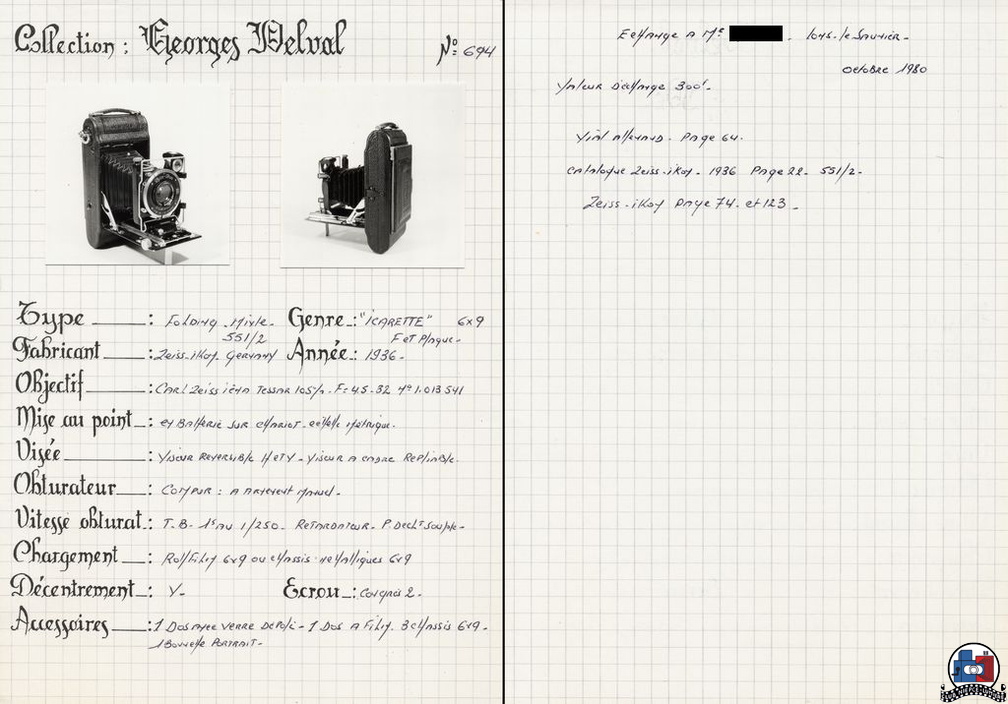 Collection : Georges Delval N° 694
Type : Folding Mixte. Genre : "ICARETTE" 6x9
551/2 F et Plaque.
Fabricant : Zeiss-ikon Germany Année : 1936.
Objectif : Carl Zeiss iéna Tessar 105%. F: 4.5-32 N° 1.013541
Mise au point : en Batterie sur chariot. echelle Métrique.
Visée : Viseur Reversible H et V - Viseur A cadre Repliable.
Obturateur : Compur : A armement Manuel.
Vitesse obturat : T.B. 1s au 1/250. Retardateur. P. Decl.t Souple.
Chargement : Roll Film 6x9 ou chassis métalliques 6x9
Décentrement : V. Ecrou : Congrès 2.
Accessoires : 1 Dos avec verre Depoli - 1 Dos A Film. 3 chassis 6x9.
1 Bonnette Portrait.
Echange a Mr . lons-le-Saunier.
octobre 1980
Valeur D'échange 300f.
Vial allemand. Page 64.
Catalogue Zeiss-ikon. 1936 Page 22. 551/2.
Zeiss-ikon Page 74. et 123.